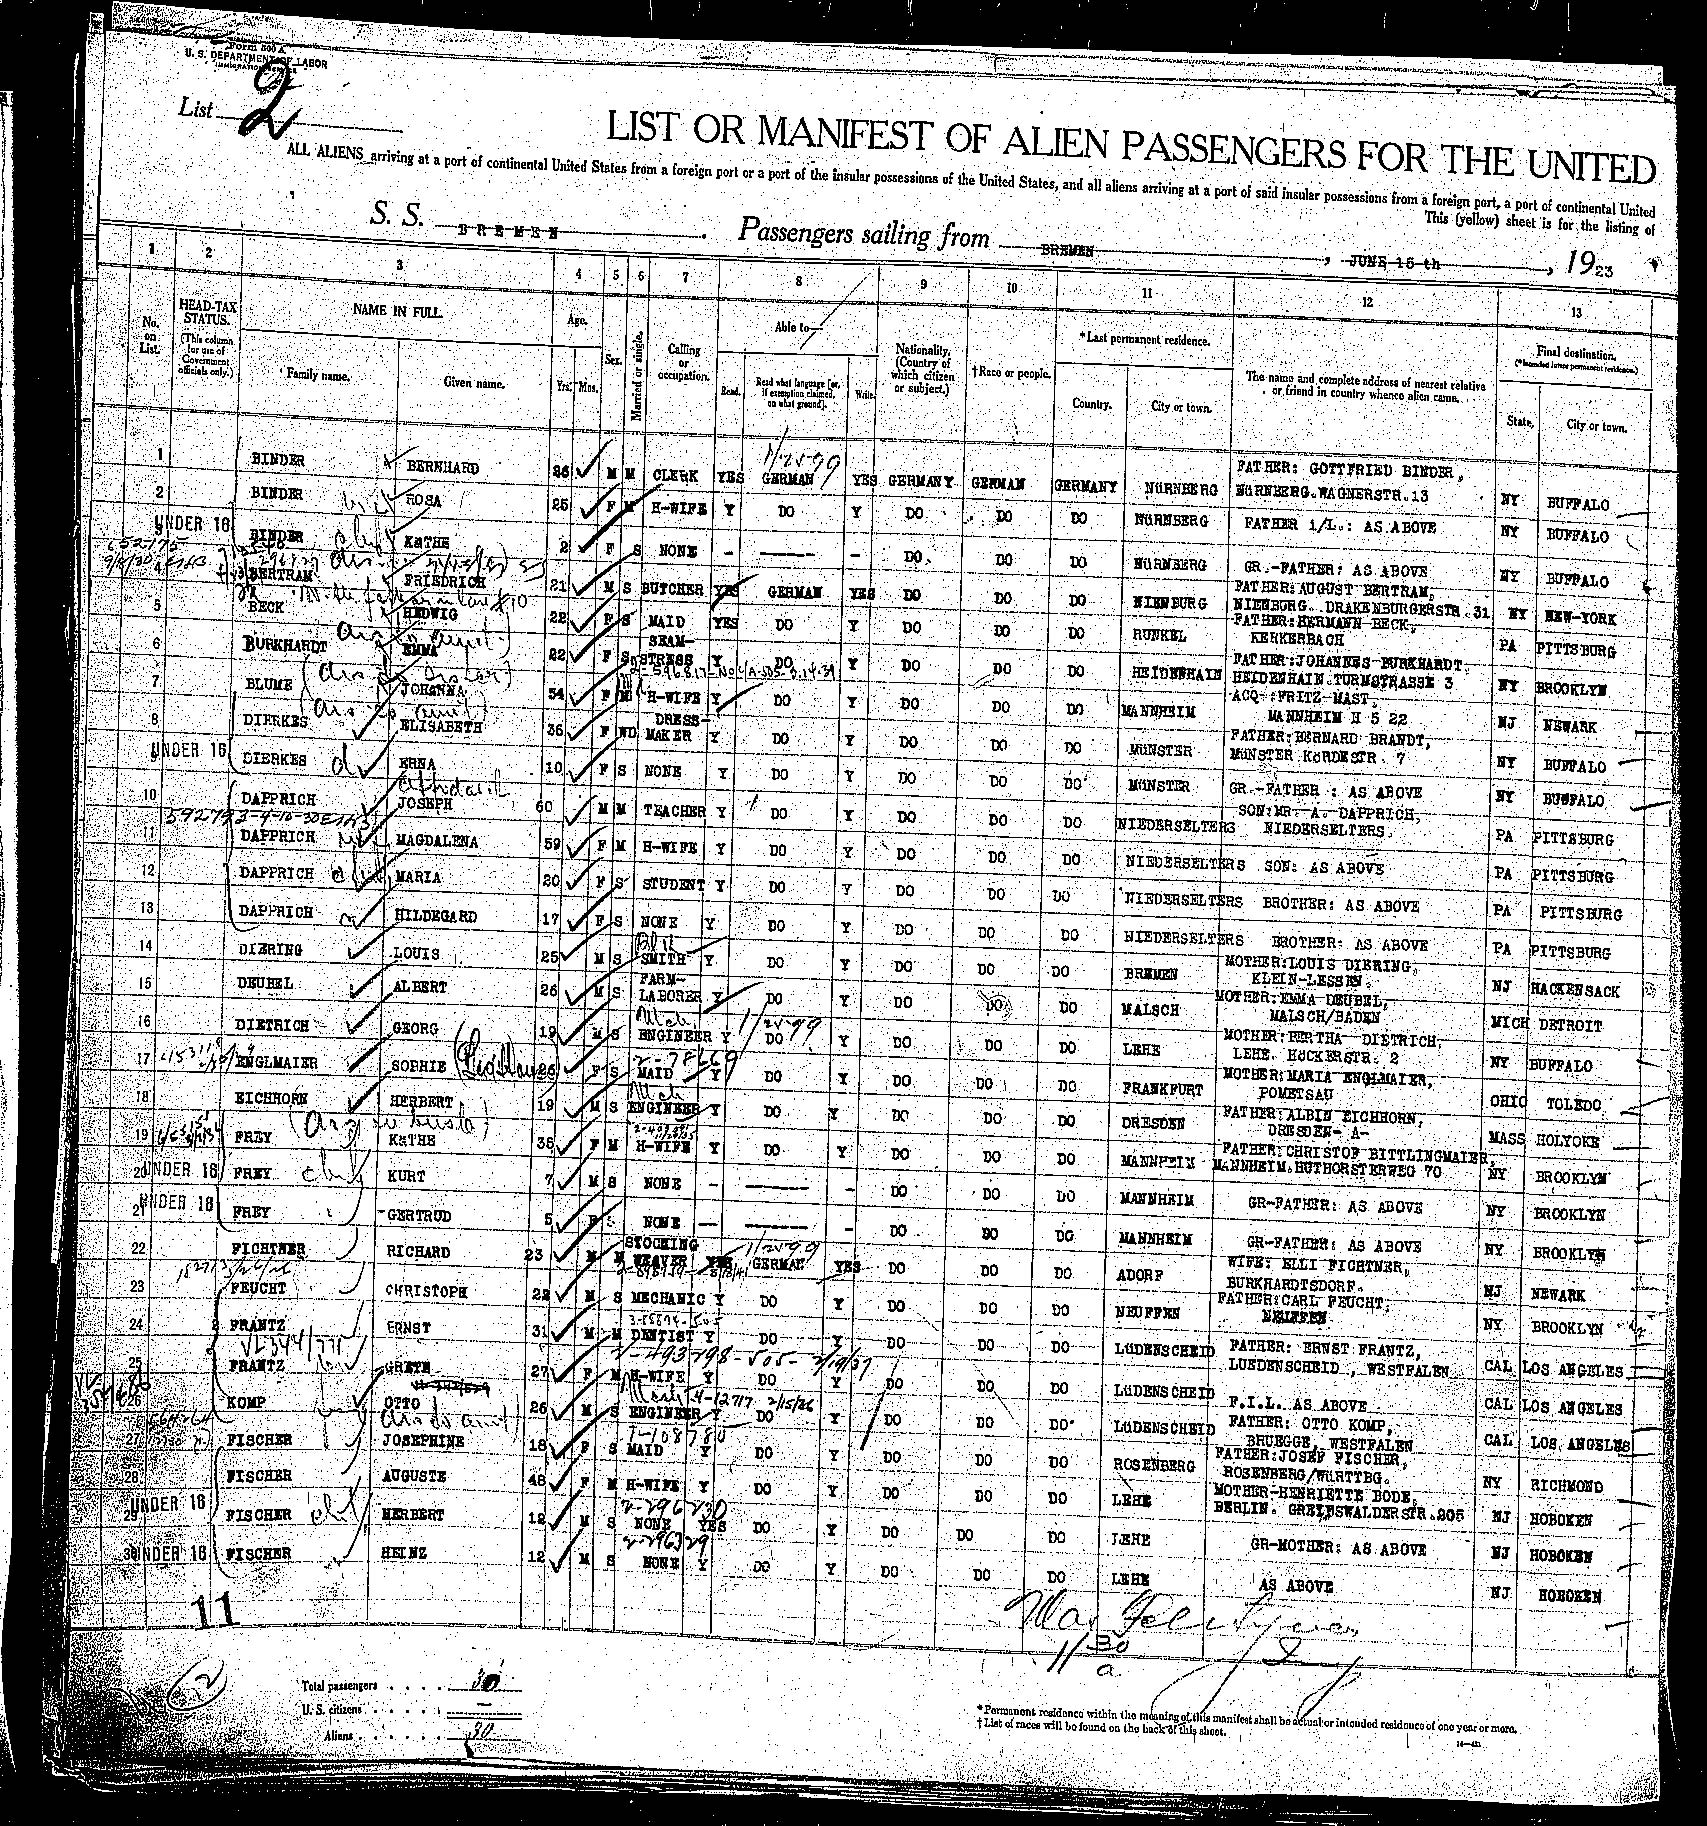 Form 500 A
U. S. DEPARTMENT OF LABOR
IMMIGRATION SERVICE
List 2
LIST OR MANIFEST OF ALIEN PASSENGERS FOR THE UNITED
ALL ALIENS arriving at a port of continental United States from a foreign port or a port of the insular possessions of the United States, and all aliens arriving at a port of said insular possessions from a foreign port, a port of continental United
This (yellow) sheet is for the listing of
S. S. BREMEN. Passengers sailing from BREMEN, JUNE 15 th, 1923
1 2 3 4 5 6 7 8 9 10 11 12 13
No. on List.
HEAD-TAX STATUS.
(This column for use of Government officials only.)
NAME IN FULL.
Family name. Given name.
Age.
Yrs. Mos.
Sex.
Married or single.
Calling or occupation.
Able to—
Read. Read what language [or, if exemption claimed, on what ground]. Write.
Nationality. (Country of which citizen or subject.)
†Race or people.
*Last permanent residence.
Country. City or town.
The name and complete address of nearest relative or friend in country whence alien came.
Final destination.
(*Intended future permanent residence.)
State. City or town.
1 BINDER BERNHARD 26 M M CLERK YES GERMAN YES GERMANY GERMAN GERMANY NüRNBERG FATHER: GOTTFRIED BINDER, NüRNBERG.WAGNERSTR.13 NY BUFFALO
2 BINDER ROSA 25 F M H-WIFE Y DO Y DO DO DO NüRNBERG FATHER i/L.: AS ABOVE NY BUFFALO
UNDER 16 BINDER KäTHE 2 F S NONE - - DO DO DO NüRNBERG GR.-FATHER: AS ABOVE NY BUFFALO
BERTRAM FRIEDRICH 21 M S BUTCHER YES GERMAN YES DO DO DO NIENBURG FATHER:AUGUST BERTRAM, NIENBURG. DRAKENBURGERSTR.31 NY NEW-YORK
5 BECK HEDWIG 22 F S MAID YES DO Y DO DO DO RUNKEL FATHER:HERMANN BECK, KERKERBACH PA PITTSBURG
6 BURKHARDT EMMA 22 F S SEAM-STRESS Y DO Y DO DO DO HEIDENHAIN FATHER:JOHANNES BURKHARDT. HEIDENHAIN.TURMSTRASSE 3 NY BROOKLYN
7 BLUME JOHANNA 54 F M H-WIFE Y DO Y DO DO DO MANNHEIM ACQ.:FRITZ MAST, MANNHEIM H 5 22 NJ NEWARK
8 DIERKES ELISABETH 36 F WD DRESS-MAKER Y DO Y DO DO DO MüNSTER FATHER:BERNARD BRANDT, MüNSTER KöRDESTR. 7 NY BUFFALO
UNDER 16 9 DIERKES ERNA 10 F S NONE Y DO Y DO DO DO MüNSTER GR.-FATHER : AS ABOVE NY BUFFALO
10 DAPPRICH JOSEPH 60 M M TEACHER Y DO Y DO DO DO NIEDERSELTERS SON:MR. A. DAPPRICH, NIEDERSELTERS. PA PITTSBURG
11 DAPPRICH MAGDALENA 59 F M H-WIFE Y DO Y DO DO DO NIEDERSELTERS SON: AS ABOVE PA PITTSBURG
12 DAPPRICH MARIA 20 F S STUDENT Y DO Y DO DO DO NIEDERSELTERS BROTHER: AS ABOVE PA PITTSBURG
13 DAPPRICH HILDEGARD 17 F S NONE Y DO Y DO DO DO NIEDERSELTERS BROTHER: AS ABOVE PA PITTSBURG
14 DIERING LOUIS 25 M S SMITH Y DO Y DO DO DO BREMEN MOTHER:LOUIS DIERING, KLEIN-LESSEN. NJ HACKENSACK
15 DEUBEL ALBERT 26 M S FARM-LABORER Y DO Y DO DO DO MALSCH MOTHER:EMMA DEUBEL, MALSCH/BADEN MICH DETROIT
16 DIETRICH GEORG 19 M S ENGINEER Y DO Y DO DO DO LEHE MOTHER:BERTHA DIETRICH, LEHE. HöCKERSTR. 2 NY BUFFALO
17 ENGLMAIER SOPHIE 26 F S MAID Y DO Y DO DO DO FRANKFURT MOTHER:MARIA ENGLMAIER, POMETSAU OHIO TOLEDO
18 EICHHORN HERBERT 19 M S ENGINEER Y DO Y DO DO DO DRESDEN FATHER:ALBIN EICHHORN, DRESDEN- A- MASS HOLYOKE
19 FREY KäTHE 36 F M H-WIFE Y DO Y DO DO DO MANNHEIM FATHER:CHRISTOF BITTLINGMAIER, MANNHEIM.HUTHORSTERWEG 70 NY BROOKLYN
20 UNDER 16 FREY KURT 7 M S NONE - - DO DO DO MANNHEIM GR-FATHER: AS ABOVE NY BROOKLYN
21 UNDER 16 FREY GERTRUD 5 F S NONE - - DO DO DO MANNHEIM GR-FATHER: AS ABOVE NY BROOKLYN
22 FICHTNER RICHARD 23 M M STOCKING WEAVER YES GERMAN YES DO DO DO ADORF WIFE: ELLI FICHTNER, BURKHARDTSDORF. NJ NEWARK
23 FEUCHT CHRISTOPH 22 M S MECHANIC Y DO Y DO DO DO NEUFFEN FATHER:CARL FEUCHT, NEUFFEN NY BROOKLYN
24 FRANTZ ERNST 31 M M DENTIST Y DO Y DO DO DO LüDENSCHEID FATHER: ERNST FRANTZ, LUEDENSCHEID, WESTFALEN CAL LOS ANGELES
25 FRANTZ GRETE 27 F M H-WIFE Y DO Y DO DO DO LüDENSCHEID F.I.L. AS ABOVE CAL LOS ANGELES
26 KOMP OTTO 26 M S ENGINEER Y DO Y DO DO DO LüDENSCHEID FATHER: OTTO KOMP, BRUEGGE, WESTFALEN CAL LOS ANGELES
27 FISCHER JOSEPHINE 18 F S MAID Y DO Y DO DO DO ROSENBERG FATHER:JOSEF FISCHER, ROSENBERG/WüRTTBG. NY RICHMOND
28 FISCHER AUGUSTE 48 F M H-WIFE Y DO Y DO DO DO LEHE MOTHER-HENRIETTE BODE, BERLIN. GREIFSWALDERSTR.205 NJ HOBOKEN
UNDER 16 29 FISCHER HERBERT 12 M S NONE YES DO Y DO DO DO LEHE GR-MOTHER: AS ABOVE NJ HOBOKEN
30 UNDER 16 FISCHER HEINZ 12 M S NONE Y DO Y DO DO DO LEHE AS ABOVE NJ HOBOKEN
11
2
Total passengers 30
U. S. citizens —
Aliens 30
*Permanent residence within the meaning of this manifest shall be actual or intended residence of one year or more.
†List of races will be found on the back of this sheet.